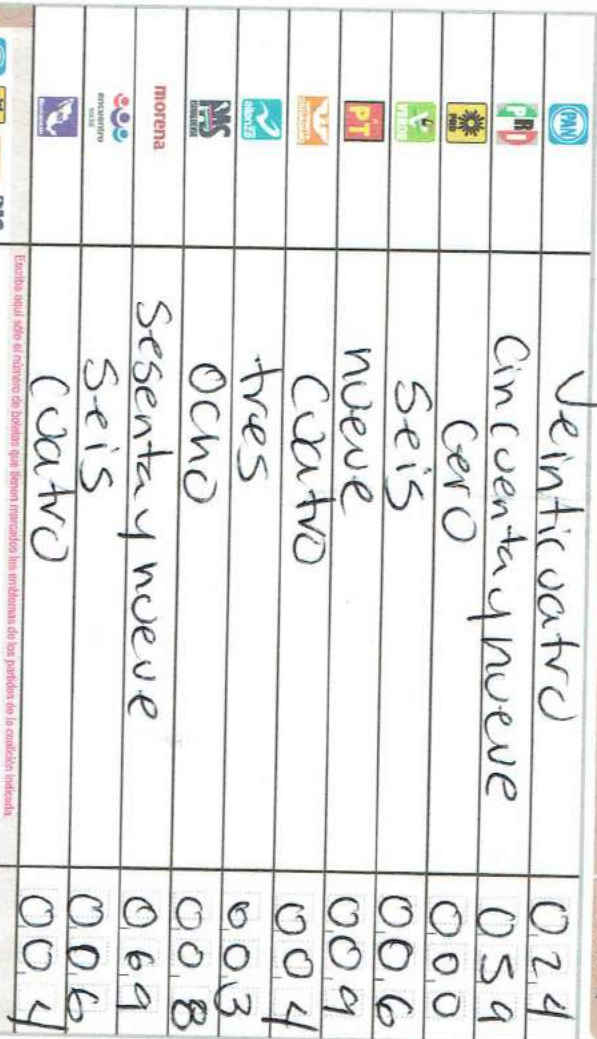 PAN Veinticuatro 024
PRI Cincuenta y nueve 059
PRD Cero 000
VERDE Seis 006
PT nueve 009
Cuatro 004
alianza tres 003
Ocho 008
morena Sesenta y nueve 069
encuentro social Seis 006
Cuatro 004
Escriba aquí sólo el número de boletas que tienen marcados los emblemas de los partidos de la coalición indicada.